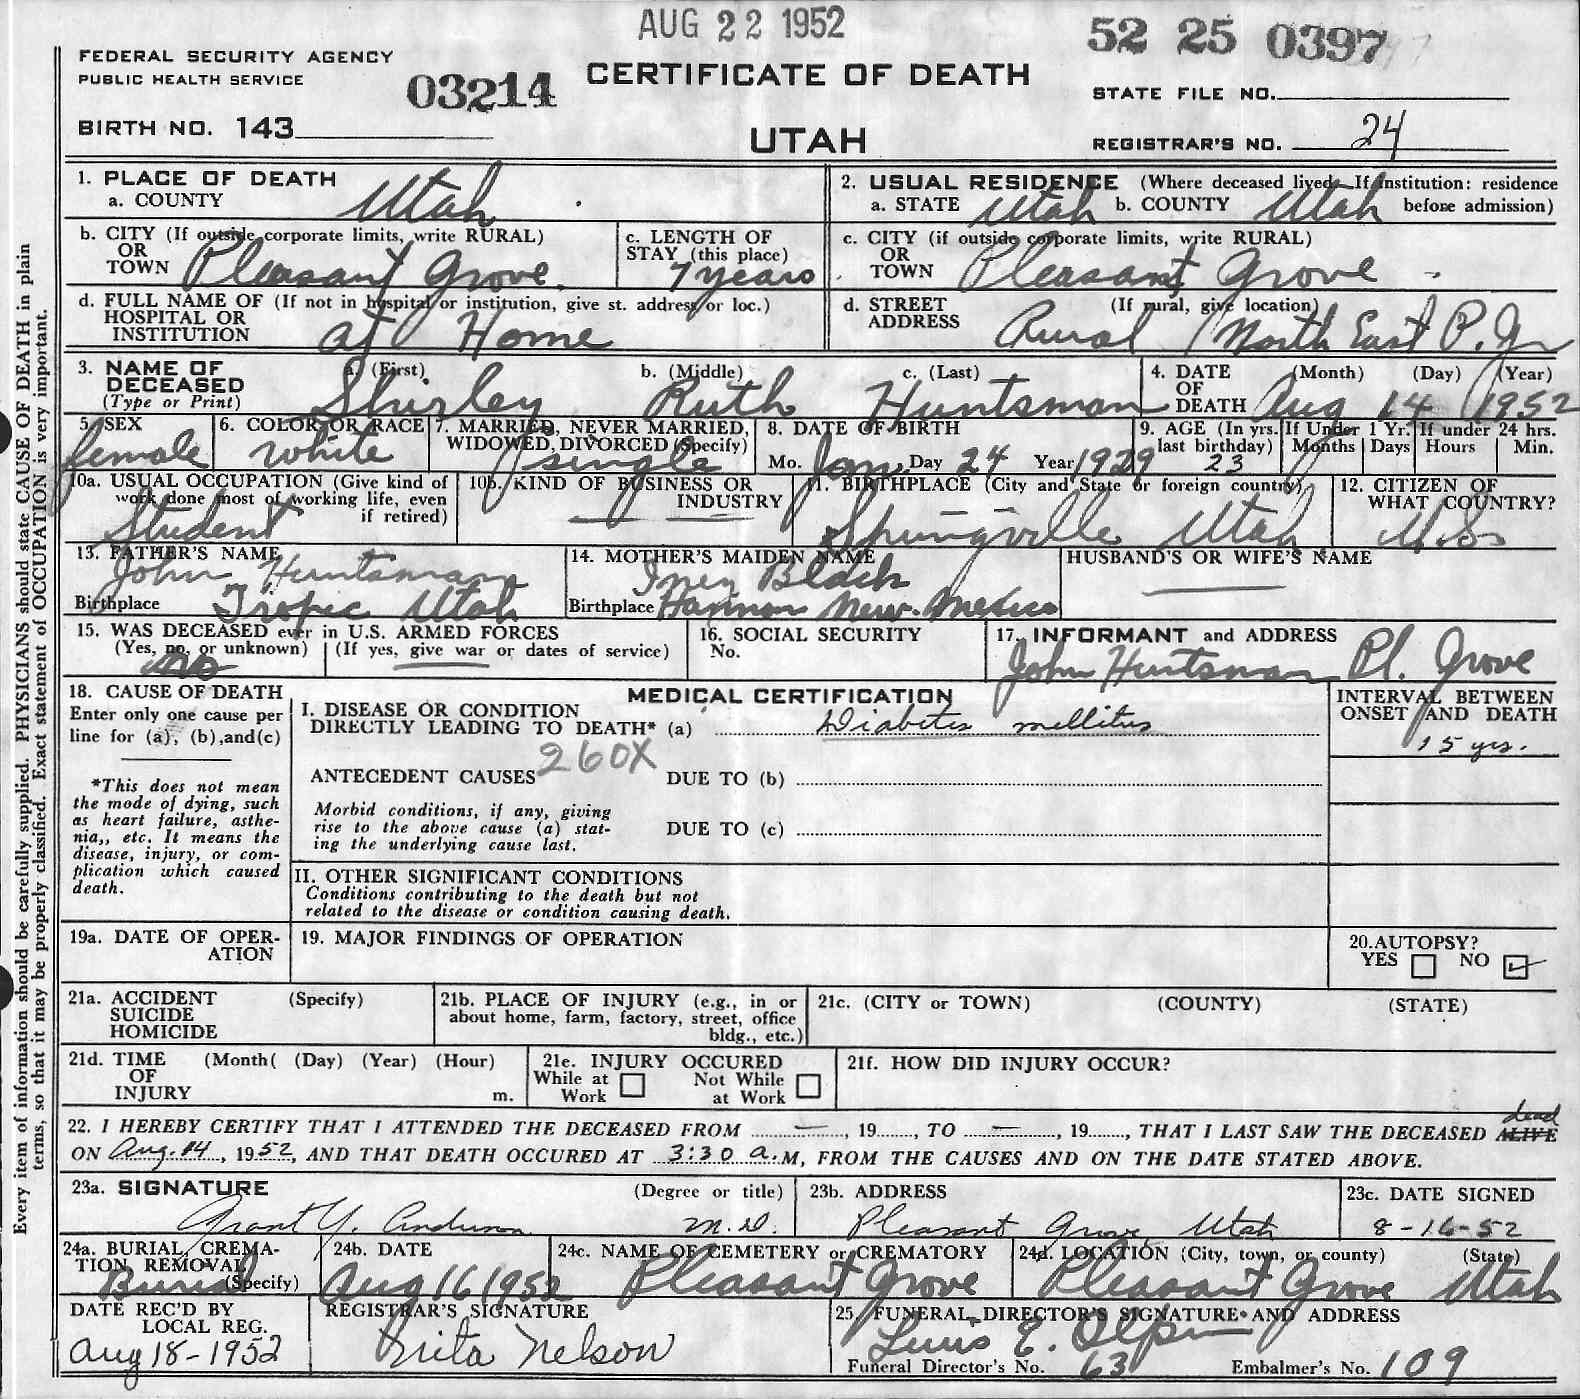 AUG 22 1952
52 25 0397
FEDERAL SECURITY AGENCY
PUBLIC HEALTH SERVICE
03214
CERTIFICATE OF DEATH
STATE FILE NO.
BIRTH NO. 143
UTAH
REGISTRAR'S NO. 24
Every item of information should be carefully supplied. PHYSICIANS should state CAUSE OF DEATH in plain
terms, so that it may be properly classified. Exact statement of OCCUPATION is very important.
1. PLACE OF DEATH
a. COUNTY Utah
2. USUAL RESIDENCE (Where deceased lived. If institution: residence
a. STATE Utah b. COUNTY Utah before admission)
b. CITY (If outside corporate limits, write RURAL)
OR
TOWN Pleasant Grove.
c. LENGTH OF
STAY (this place)
7 years
c. CITY (if outside corporate limits, write RURAL)
OR
TOWN Pleasant Grove
d. FULL NAME OF (If not in hospital or institution, give st. address or loc.)
HOSPITAL OR
INSTITUTION at Home
d. STREET (If rural, give location)
ADDRESS Rural North East P. Gr
3. NAME OF
DECEASED
(Type or Print)
a. (First) b. (Middle) c. (Last)
Shirley Ruth Huntsman
4. DATE (Month) (Day) (Year)
OF
DEATH Aug 14 1952
5. SEX
female
6. COLOR OR RACE
White
7. MARRIED, NEVER MARRIED,
WIDOWED, DIVORCED (Specify)
single
8. DATE OF BIRTH
Mo. Jan. Day 24 Year 1929
9. AGE (In yrs. last birthday)
23
If Under 1 Yr.
Months Days
If under 24 hrs.
Hours Min.
10a. USUAL OCCUPATION (Give kind of
work done most of working life, even
if retired)
Student
10b. KIND OF BUSINESS OR
INDUSTRY
11. BIRTHPLACE (City and State or foreign country)
Springville Utah
12. CITIZEN OF
WHAT COUNTRY?
U.S.
13. FATHER'S NAME
John Huntsman
Birthplace Tropic Utah
14. MOTHER'S MAIDEN NAME
Inez Black
Birthplace New Mexico
HUSBAND'S OR WIFE'S NAME
15. WAS DECEASED ever in U.S. ARMED FORCES
(Yes, no, or unknown) (If yes, give war or dates of service)
no
16. SOCIAL SECURITY
No.
17. INFORMANT and ADDRESS
John Huntsman Pl. Grove
18. CAUSE OF DEATH
Enter only one cause per
line for (a), (b), and (c)
*This does not mean
the mode of dying, such
as heart failure, asthe-
nia,, etc. It means the
disease, injury, or com-
plication which caused
death.
MEDICAL CERTIFICATION
I. DISEASE OR CONDITION
DIRECTLY LEADING TO DEATH* (a) Diabetis mellitus
260X
ANTECEDENT CAUSES DUE TO (b)
Morbid conditions, if any, giving
rise to the above cause (a) stat-
ing the underlying cause last.
DUE TO (c)
INTERVAL BETWEEN
ONSET AND DEATH
15 yrs.
II. OTHER SIGNIFICANT CONDITIONS
Conditions contributing to the death but not
related to the disease or condition causing death.
19a. DATE OF OPER-
ATION
19. MAJOR FINDINGS OF OPERATION
20. AUTOPSY?
YES NO
21a. ACCIDENT (Specify)
SUICIDE
HOMICIDE
21b. PLACE OF INJURY (e.g., in or
about home, farm, factory, street, office
bldg., etc.)
21c. (CITY or TOWN) (COUNTY) (STATE)
21d. TIME (Month( (Day) (Year) (Hour)
OF
INJURY m.
21e. INJURY OCCURED
While at Not While
Work at Work
21f. HOW DID INJURY OCCUR?
dead
22. I HEREBY CERTIFY THAT I ATTENDED THE DECEASED FROM —, 19....., TO —, 19....., THAT I LAST SAW THE DECEASED ALIVE
ON Aug. 14, 1952, AND THAT DEATH OCCURED AT 3:30 a.M, FROM THE CAUSES AND ON THE DATE STATED ABOVE.
23a. SIGNATURE (Degree or title)
Grant Y. Anderson M.D.
23b. ADDRESS
Pleasant Grove Utah
23c. DATE SIGNED
8-16-52
24a. BURIAL, CREMA-
TION, REMOVAL
(Specify)
Burial
24b. DATE
Aug 16 1952
24c. NAME OF CEMETERY or CREMATORY
Pleasant Grove
24d. LOCATION (City, town, or county) (State)
Pleasant Grove Utah
DATE REC'D BY
LOCAL REG.
Aug 18-1952
REGISTRAR'S SIGNATURE
Nelson
25. FUNERAL DIRECTOR'S SIGNATURE AND ADDRESS
E. Olpin
Funeral Director's No. 63 Embalmer's No. 109